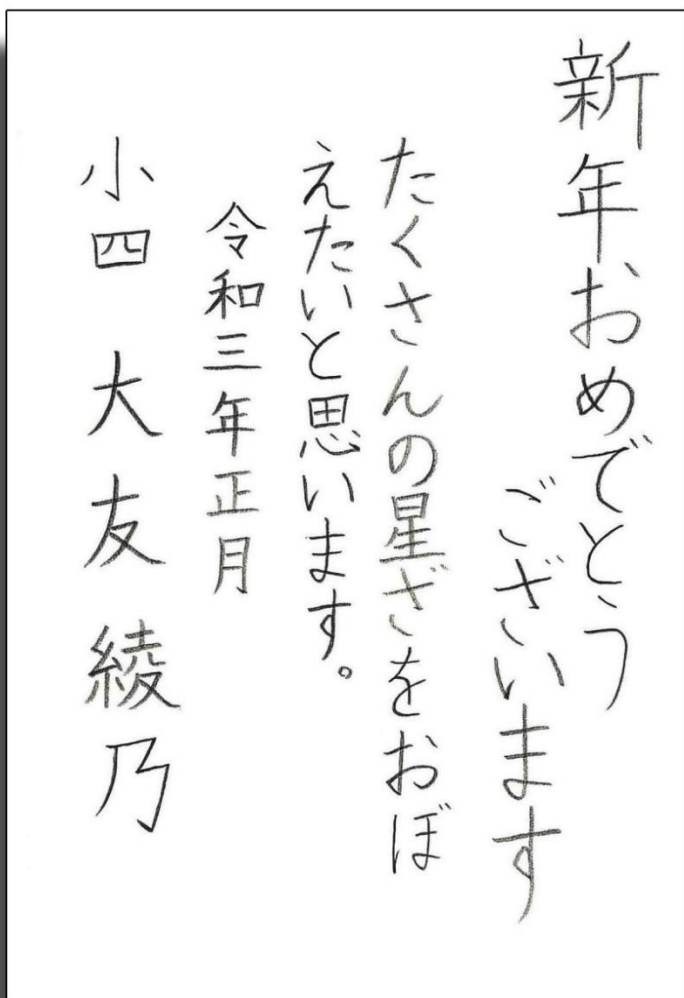 新年おめでとう
ございます
たくさんの星ざをおぼ
えたいと思います。
令和三年正月
小四 大友綾乃